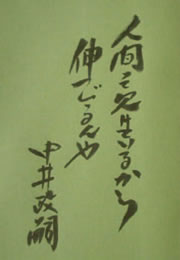 人間 いるから
伸びるんや
中井政嗣